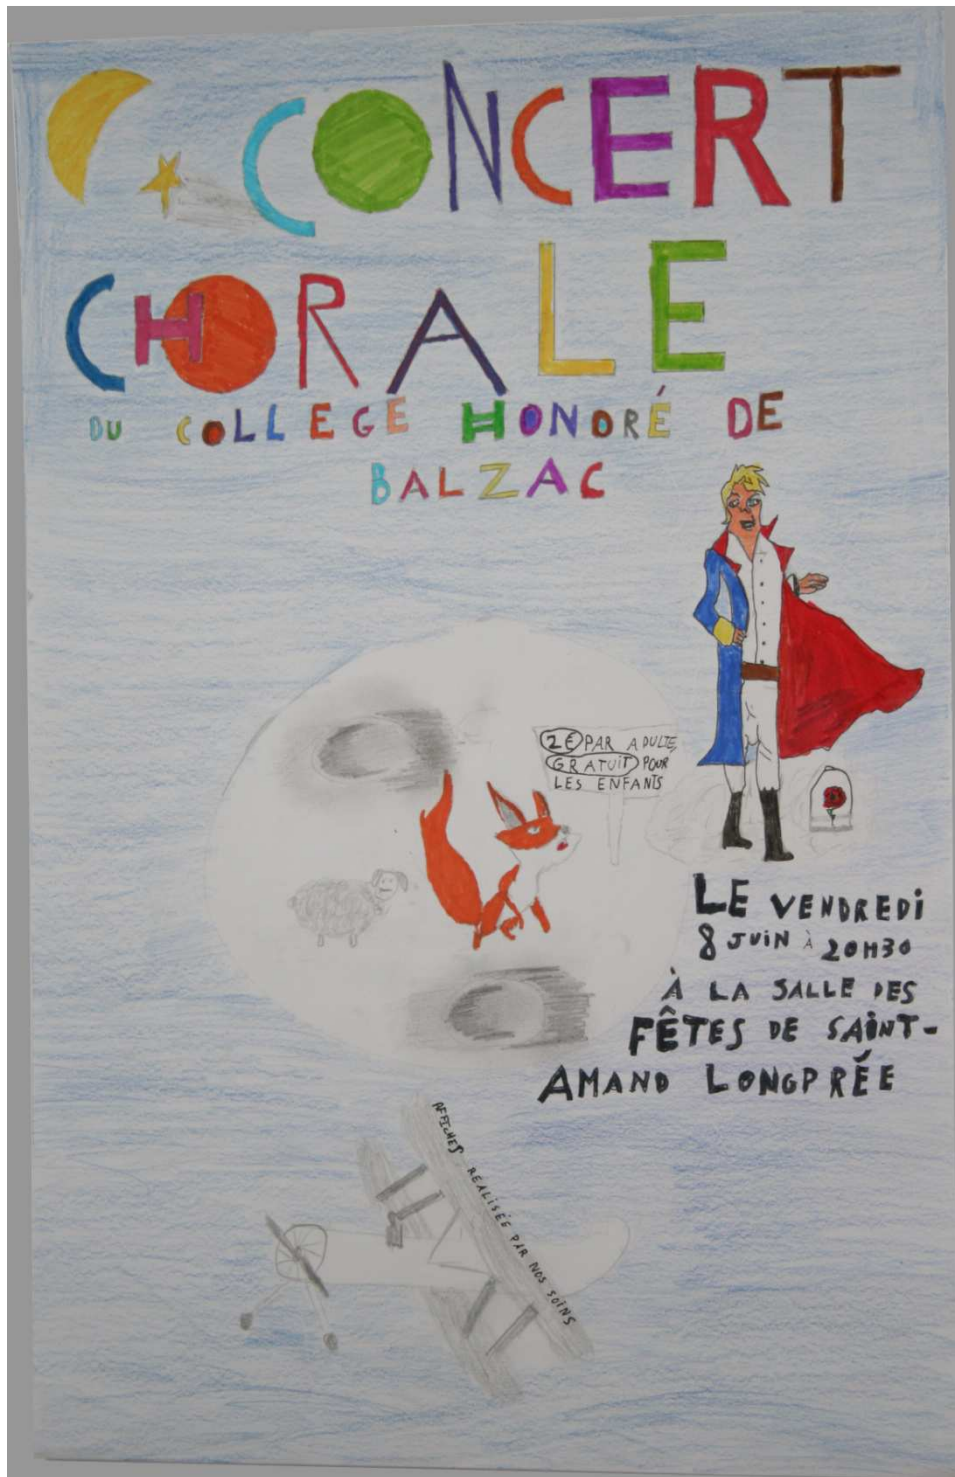 CONCERT
CHORALE
DU COLLEGE HONORÉ DE
BALZAC
2€ PAR ADULTE
GRATUIT POUR
LES ENFANTS
LE VENDREDI
8 JUIN À 20H30
À LA SALLE DES
FÊTES DE SAINT-
AMAND LONGPRÉE
AFFICHES REALISÉE PAR NOS SOINS